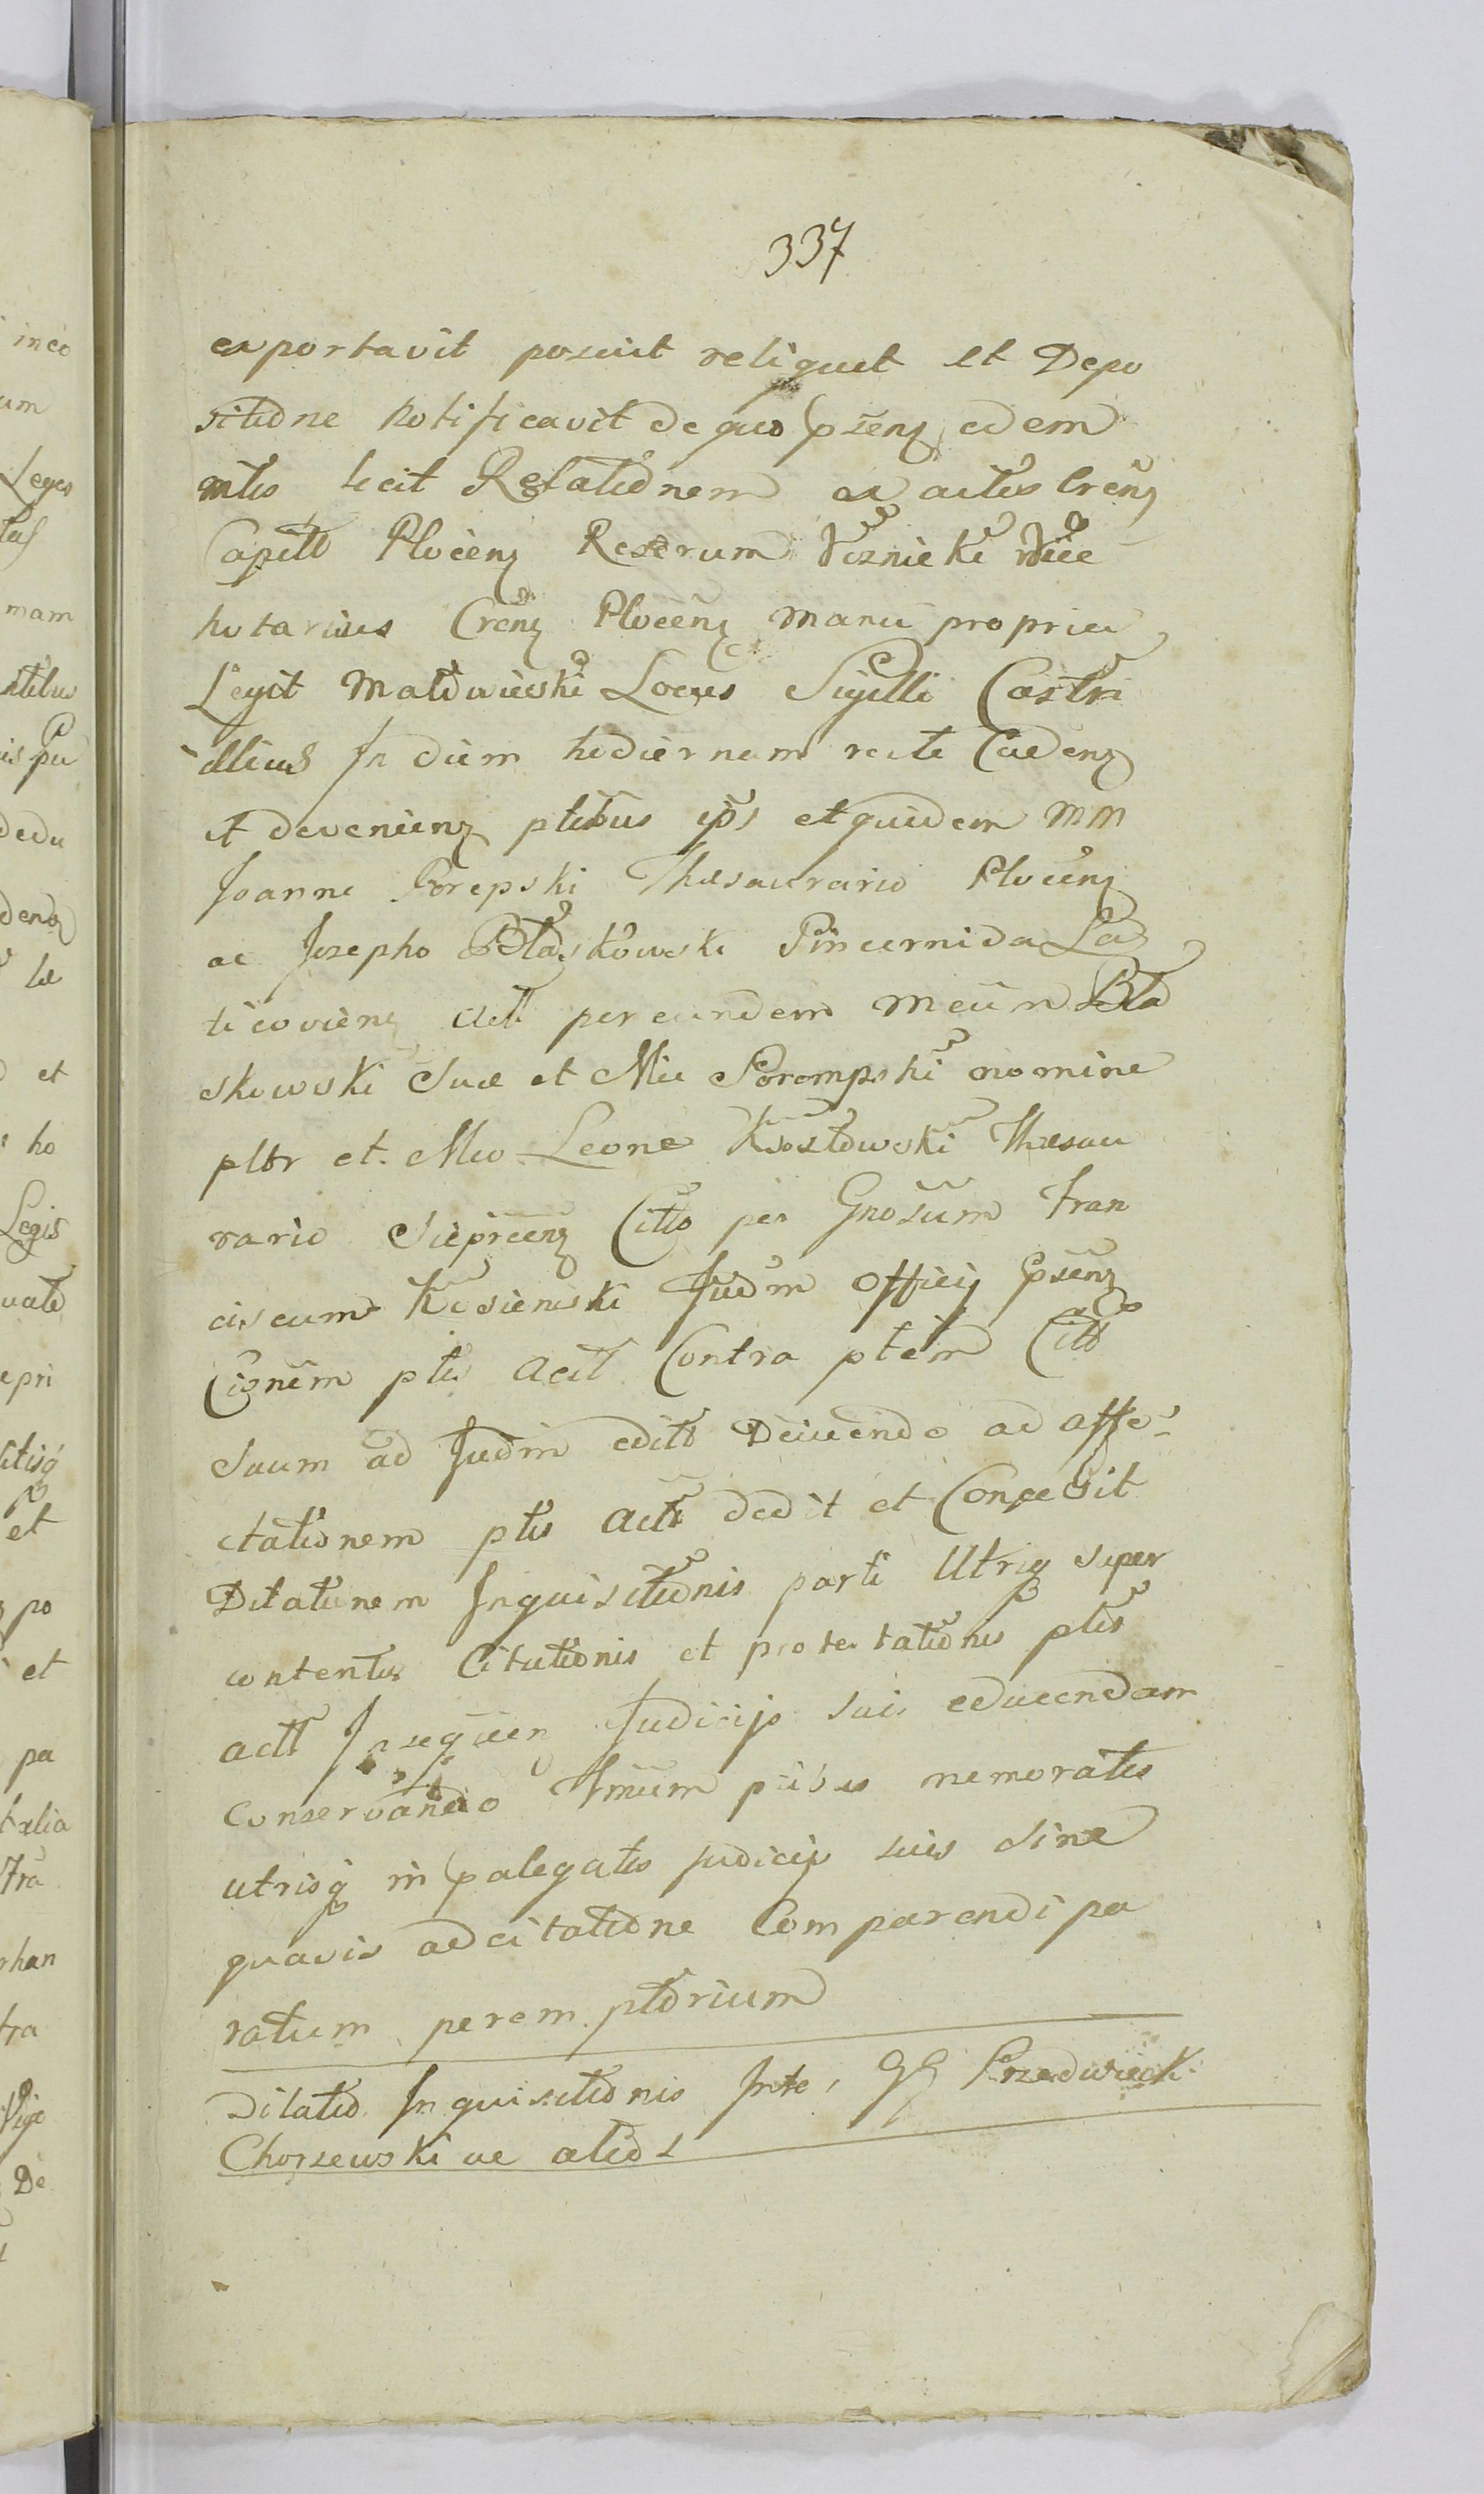 337
exportavit posuit reliquit et Depo
sitione notificavit de quo psenę idem
mtis fecit Relationem ex actis Crenę
Capitt Plocenę Rescrum Woznicki Vice
notarius Crenę Plocenę manu propria
Legit Matowieski Locus Sigilli Castri
illius In diem hodiernam recte Cadenę
et devenienę ptibus ips et quidem MM
Joanne Porepski Thesaurario Plocenę
ac Jozepho Błaskowski Pincernida La
ticovienę Act per eundem Meum Bła
skowski Suo et Mci Porempski nomine
pltr et Mco Leone Kosztowski Thesau
rario Sieprcenę Citto per Gnosum Fran
ciscum Kosienski Judm Officij psenę
Cionem ptis Actt Contra ptem Citt
Suum ad Judm editt Deivendo ad affe
ctationem ptis Actt dedit et Concessit
Dilationem Inquisitionis parti Utriq super
contentis Citationis et protestationis ptis
actt Insequen Judicijs suis educendam
Conservando Tmum ptibus memoratis
utrisq in palegatis judicijs suis sine
quavis adcitatione Comparendi pa
ratum peremptorium
Dilatio Inquisitionis Inter GG Przedwieck
Chorzewski ac alios
ineo
um
Leges
mam
dedu
et
ho
Legis
epri
et
po
et
pa
talia
tra
rhan
tra
De